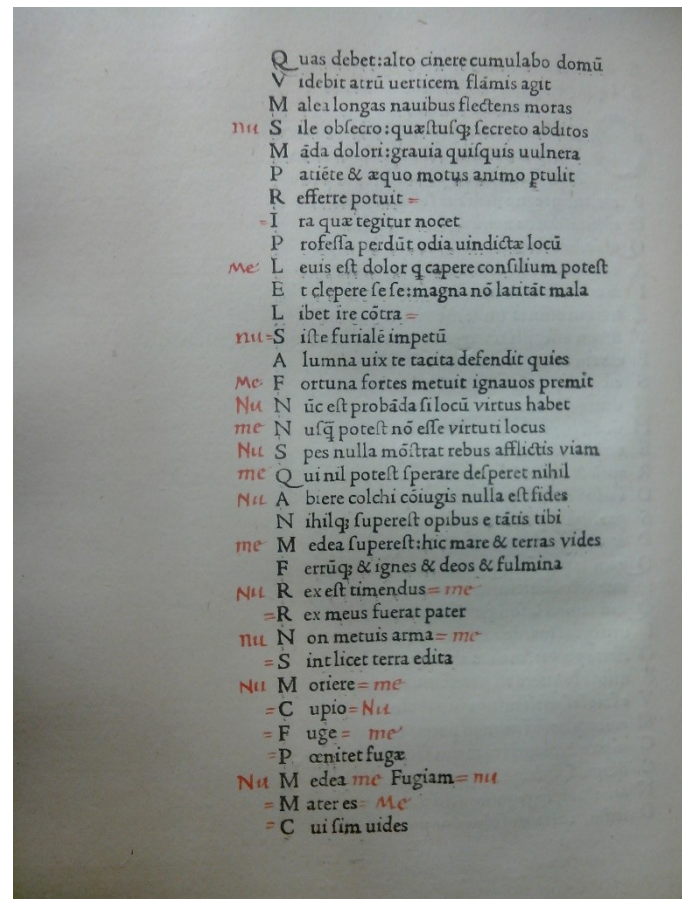 Quas debet:alto cinere cumulabo domū
Videbit atrū uerticem flāmis agit
Malea longas nauibus flectens moras
nu Sile obſecro:quæſtuſq; ſecreto abditos
Māda dolori:grauia quiſquis uulnera
Patiēte & æquo motus animo ꝑtulit
Referre potuit =
=Ira quæ tegitur nocet
Profeſſa perdūt odia uindictæ locū
Me: Leuis eſt dolor q capere conſilium poteſt
Et clepere ſe ſe:magna nō latitāt mala
Libet ire cōtra =
nu=Siſte furialē impetū
Alumna uix te tacita defendit quies
Me: Fortuna fortes metuit ignauos premit
Nu Nūc eſt probāda ſi locū virtus habet
me Nuſq̄ poteſt nō eſſe virtuti locus
Nu Spes nulla mōſtrat rebus afflictis viam
me Qui nil poteſt ſperare deſperet nihil
Nu Abiere colchi cōiugis nulla eſt fides
Nihilq; ſupereſt opibus e tātis tibi
me Medea ſupereſt:hic mare & terras vides
Ferrūq; & ignes & deos & fulmina
Nu Rex eſt timendus= me
=Rex meus fuerat pater
nu Non metuis arma= me
=Sint licet terra edita
Nu Moriere= me
=Cupio=Nu
=Fuge= me
=Pœnitet fugæ
Nu Medea me Fugiam= nu
=Mater es= Me
=Cui ſim uides